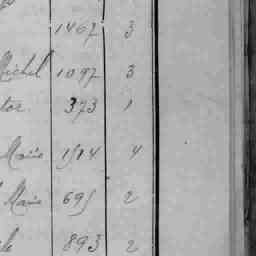 1467 3
Michel 1097 3
tor 373 1
Marie 1914 4
Marie 695 2
le 893 2